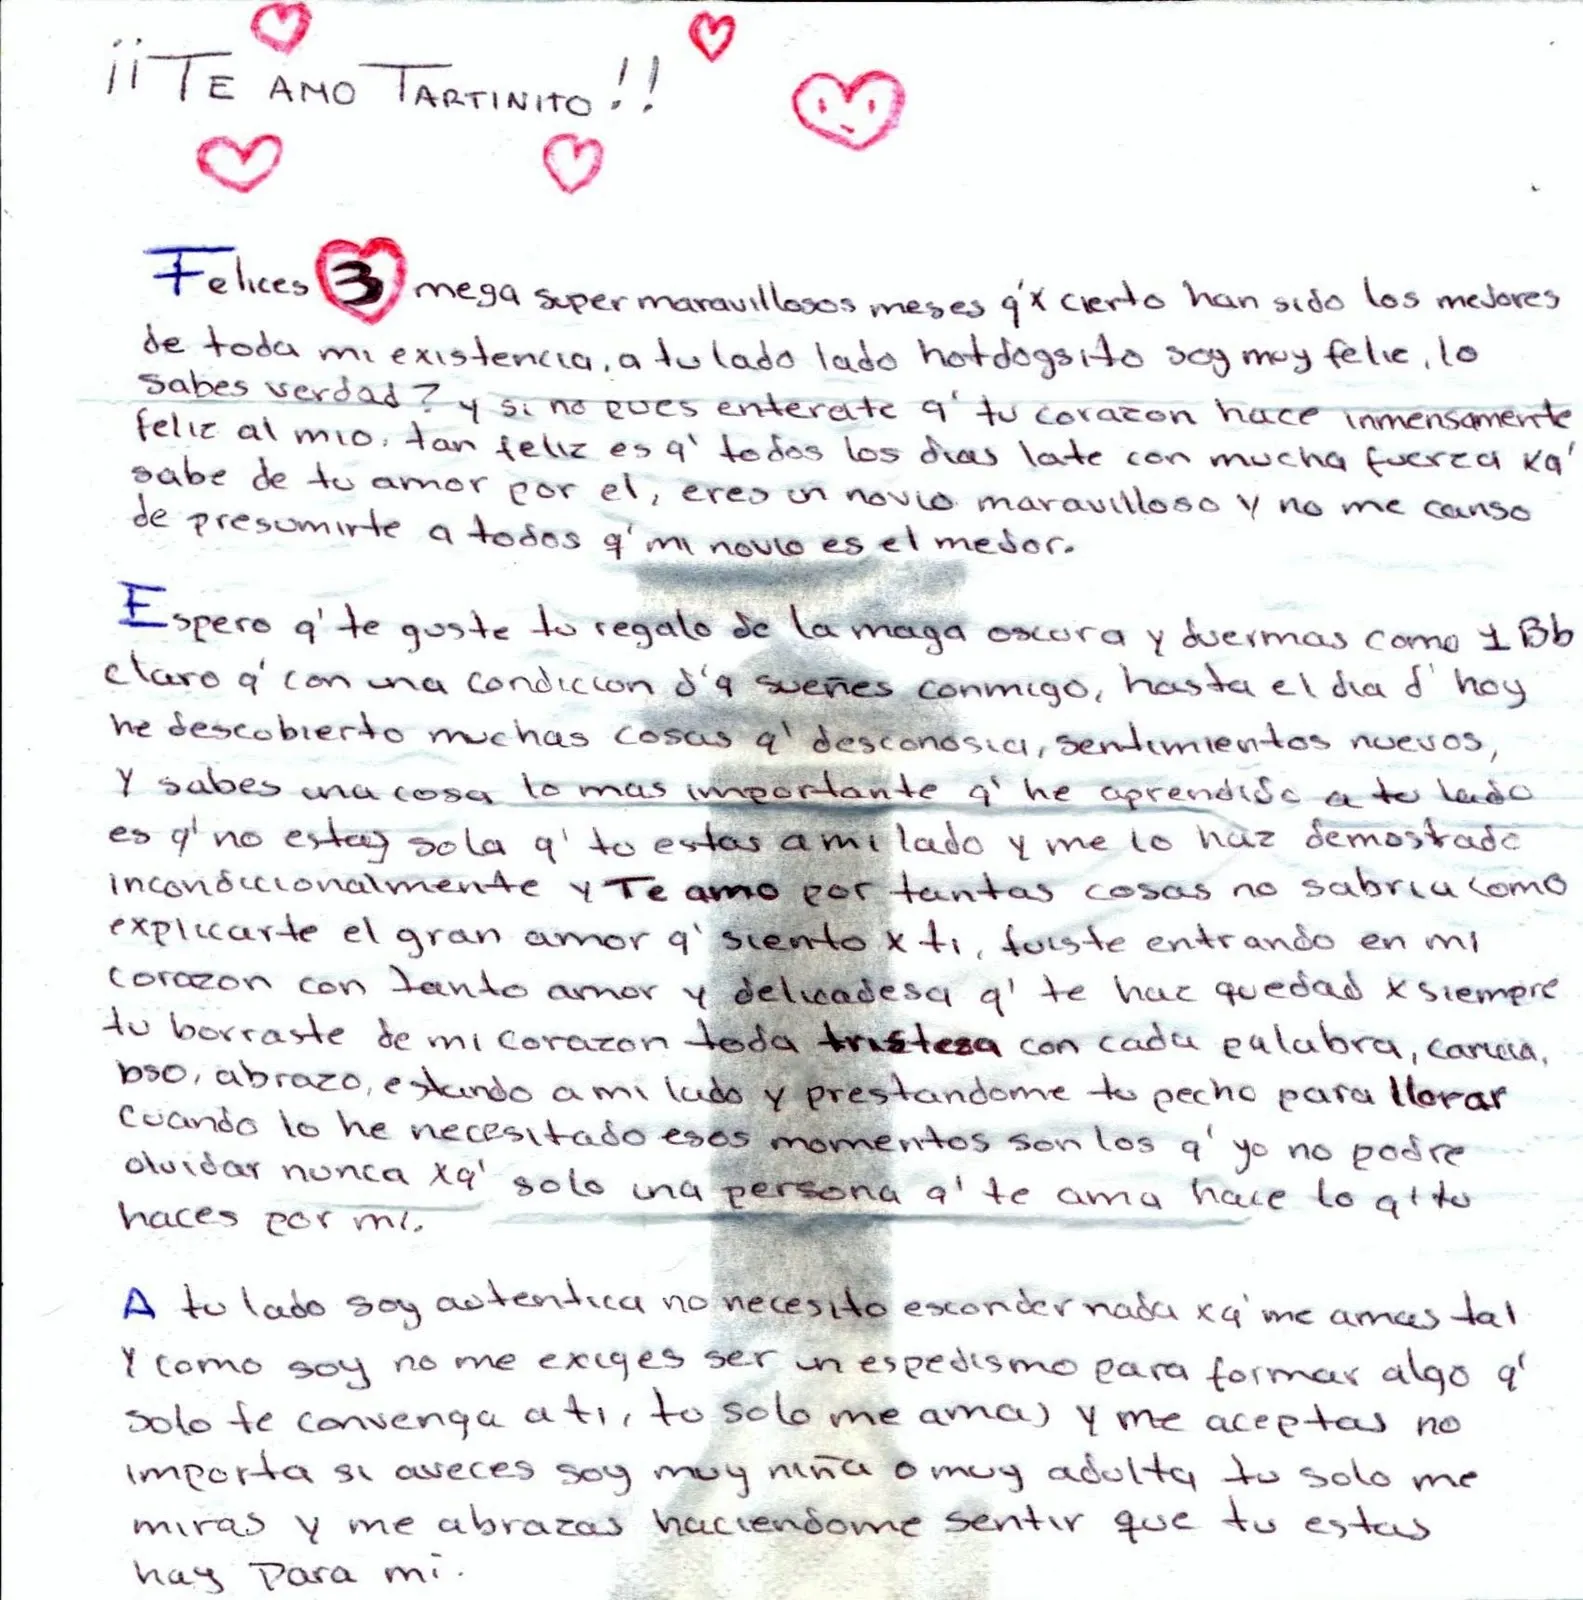 ¡¡TE AMO TARTINITO!!
Felices 3 mega super maravillosos meses q'x cierto han sido los mejores
de toda mi existencia, a tu lado lado hotdogsito soy muy feliz, lo
sabes verdad? y si no pues enterate q' tu corazon hace inmensamente
feliz al mio, tan feliz es q' todos los dias late con mucha fuerza xq'
sabe de tu amor por el, eres un novio maravilloso y no me canso
de presumirte a todos q' mi novio es el mejor.
Espero q' te guste tu regalo de la maga oscura y duermas como 1 Bb
claro q' con una condiccion d'q sueñes conmigo, hasta el dia d' hoy
he descobierto muchas cosas q' desconosia, sentimientos nuevos,
Y sabes una cosa lo mas importante q' he aprendido a tu lado
es q' no estoy sola q' tu estas a mi lado y me lo haz demostrado
incondiccionalmente y Te amo por tantas cosas no sabria como
explicarte el gran amor q' siento x ti, fuiste entrando en mi
corazon con tanto amor y delicadesa q' te haz quedad x siempre
tu borraste de mi corazon toda tristesa con cada palabra, caricia,
bso, abrazo, estando a mi lado y prestandome tu pecho para llorar
cuando lo he necesitado esos momentos son los q' yo no podre
olvidar nunca xq' solo una persona q' te ama hace lo q' tu
haces por mi.
A tu lado soy autentica no necesito esconder nada xq' me amas tal
Y como soy no me exiges ser un espedismo para formar algo q'
solo te convenga a ti, tu solo me amas y me aceptas no
importa si aveces soy muy niña o muy adulta tu solo me
miras y me abrazas haciendome sentir que tu estas
hay para mi.